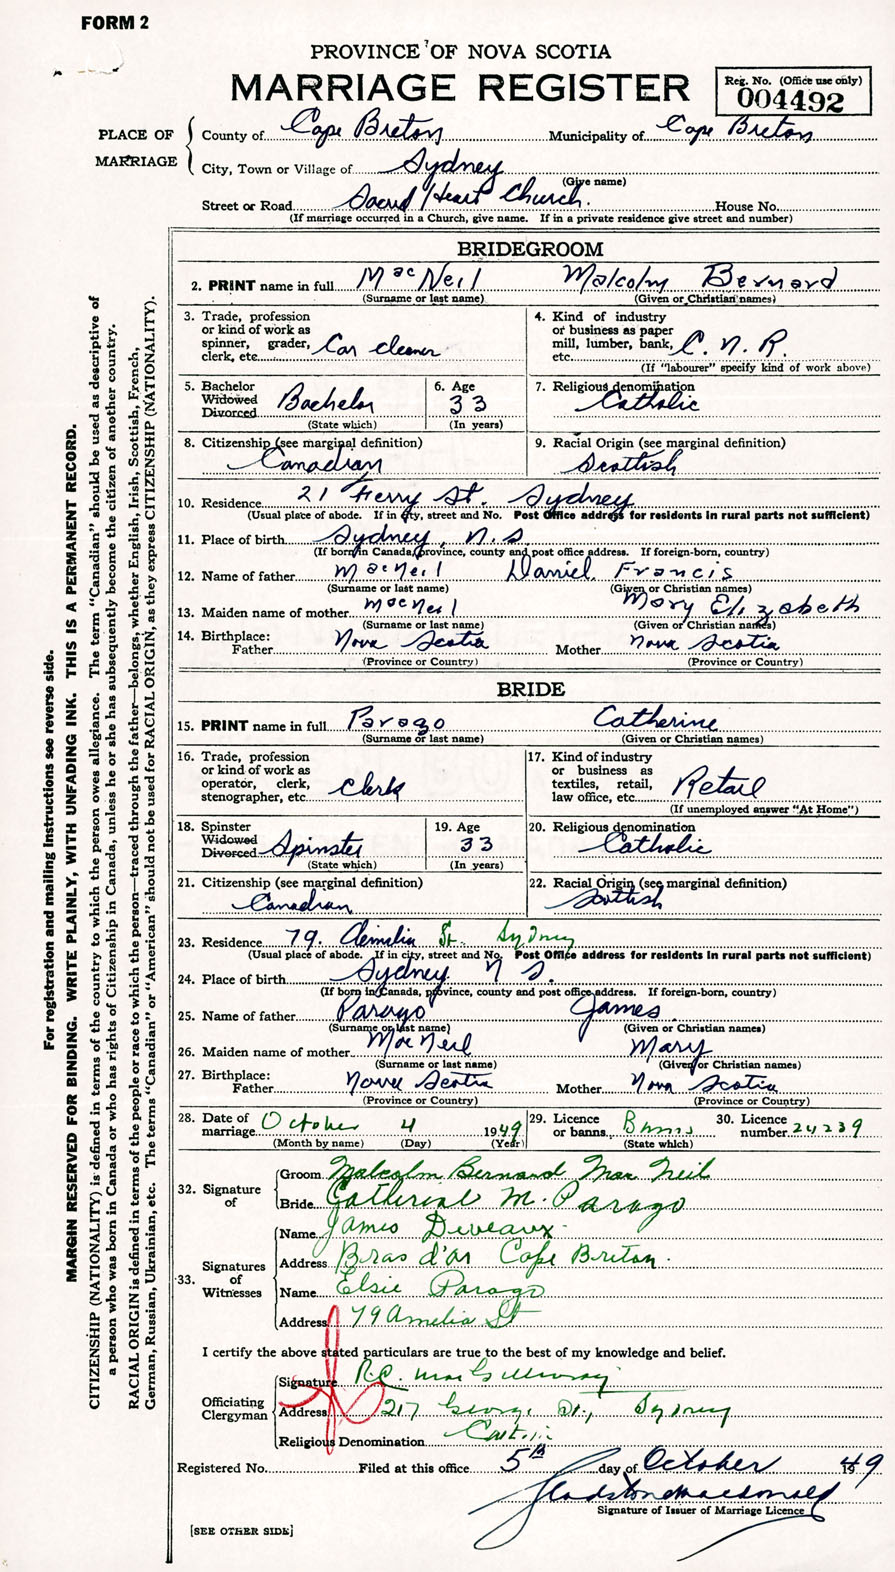 FORM 2
PROVINCE OF NOVA SCOTIA
MARRIAGE REGISTER
Reg. No. (Office use only)
004492
PLACE OF MARRIAGE
County of Cape Breton Municipality of Cape Breton
City, Town or Village of Sydney
(Give name)
Street or Road Sacred Heart Church. House No.
(If marriage occurred in a Church, give name. If in a private residence give street and number)
BRIDEGROOM
2. PRINT name in full MacNeil Malcolm Bernard
(Surname or last name) (Given or Christian names)
3. Trade, profession or kind of work as spinner, grader, clerk, etc. Car cleaner
4. Kind of industry or business as paper mill, lumber, bank, etc. C. N. R.
(If "labourer" specify kind of work above)
5. Bachelor Widowed Divorced Bachelor
(State which)
6. Age 33
(In years)
7. Religious denomination Catholic
8. Citizenship (see marginal definition) Canadian
9. Racial Origin (see marginal definition) Scottish
10. Residence 21 Ferry St. Sydney
(Usual place of abode. If in city, street and No. Post Office address for residents in rural parts not sufficient)
11. Place of birth Sydney, N.S
(If born in Canada, province, county and post office address. If foreign-born, country)
12. Name of father MacNeil Daniel Francis
(Surname or last name) (Given or Christian names)
13. Maiden name of mother MacNeil Mary Elizabeth
(Surname or last name) (Given or Christian names)
14. Birthplace: Father Nova Scotia Mother Nova Scotia
(Province or Country) (Province or Country)
BRIDE
15. PRINT name in full Parago Catherine
(Surname or last name) (Given or Christian names)
16. Trade, profession or kind of work as operator, clerk, stenographer, etc. Clerk
17. Kind of industry or business as textiles, retail, law office, etc. Retail
(If unemployed answer "At Home")
18. Spinster Widowed Divorced Spinster
(State which)
19. Age 33
(In years)
20. Religious denomination Catholic
21. Citizenship (see marginal definition) Canadian
22. Racial Origin (see marginal definition) Scottish
23. Residence 79. St. Sydney
(Usual place of abode. If in city, street and No. Post Office address for residents in rural parts not sufficient)
24. Place of birth Sydney N S.
(If born in Canada, province, county and post office address. If foreign-born, country)
25. Name of father Parago James
(Surname or last name) (Given or Christian names)
26. Maiden name of mother MacNeil Mary
(Surname or last name) (Given or Christian names)
27. Birthplace: Father Nova Scotia Mother Nova Scotia
(Province or Country) (Province or Country)
28. Date of marriage October 4 1949
(Month by name) (Day) (Year)
29. Licence or banns Banns
(State which)
30. Licence number 24239
32. Signature of
Groom Malcolm Bernard MacNeil
Bride Catherine M. Parago
33. Signatures of Witnesses
Name James Deveaux
Address Bras d'or Cape Breton.
Name Elsie Parago
Address 79 Amelia St
I certify the above stated particulars are true to the best of my knowledge and belief.
Officiating Clergyman
Signature R.C. MacGillivray
Address 217 George St., Sydney
Religious Denomination
Registered No. Filed at this office 5th day of October 1949
Gladstone Macdonald
Signature of Issuer of Marriage Licence
[SEE OTHER SIDE]
For registration and mailing instructions see reverse side.
MARGIN RESERVED FOR BINDING. WRITE PLAINLY, WITH UNFADING INK. THIS IS A PERMANENT RECORD.
CITIZENSHIP (NATIONALITY) is defined in terms of the country to which the person owes allegiance. The term "Canadian" should be used as descriptive of
a person who was born in Canada or who has rights of Citizenship in Canada, unless he or she has subsequently become the citizen of another country.
RACIAL ORIGIN is defined in terms of the people or race to which the person—traced through the father—belongs, whether English, Irish, Scottish, French,
German, Russian, Ukrainian, etc. The terms "Canadian" or "American" should not be used for RACIAL ORIGIN, as they express CITIZENSHIP (NATIONALITY).